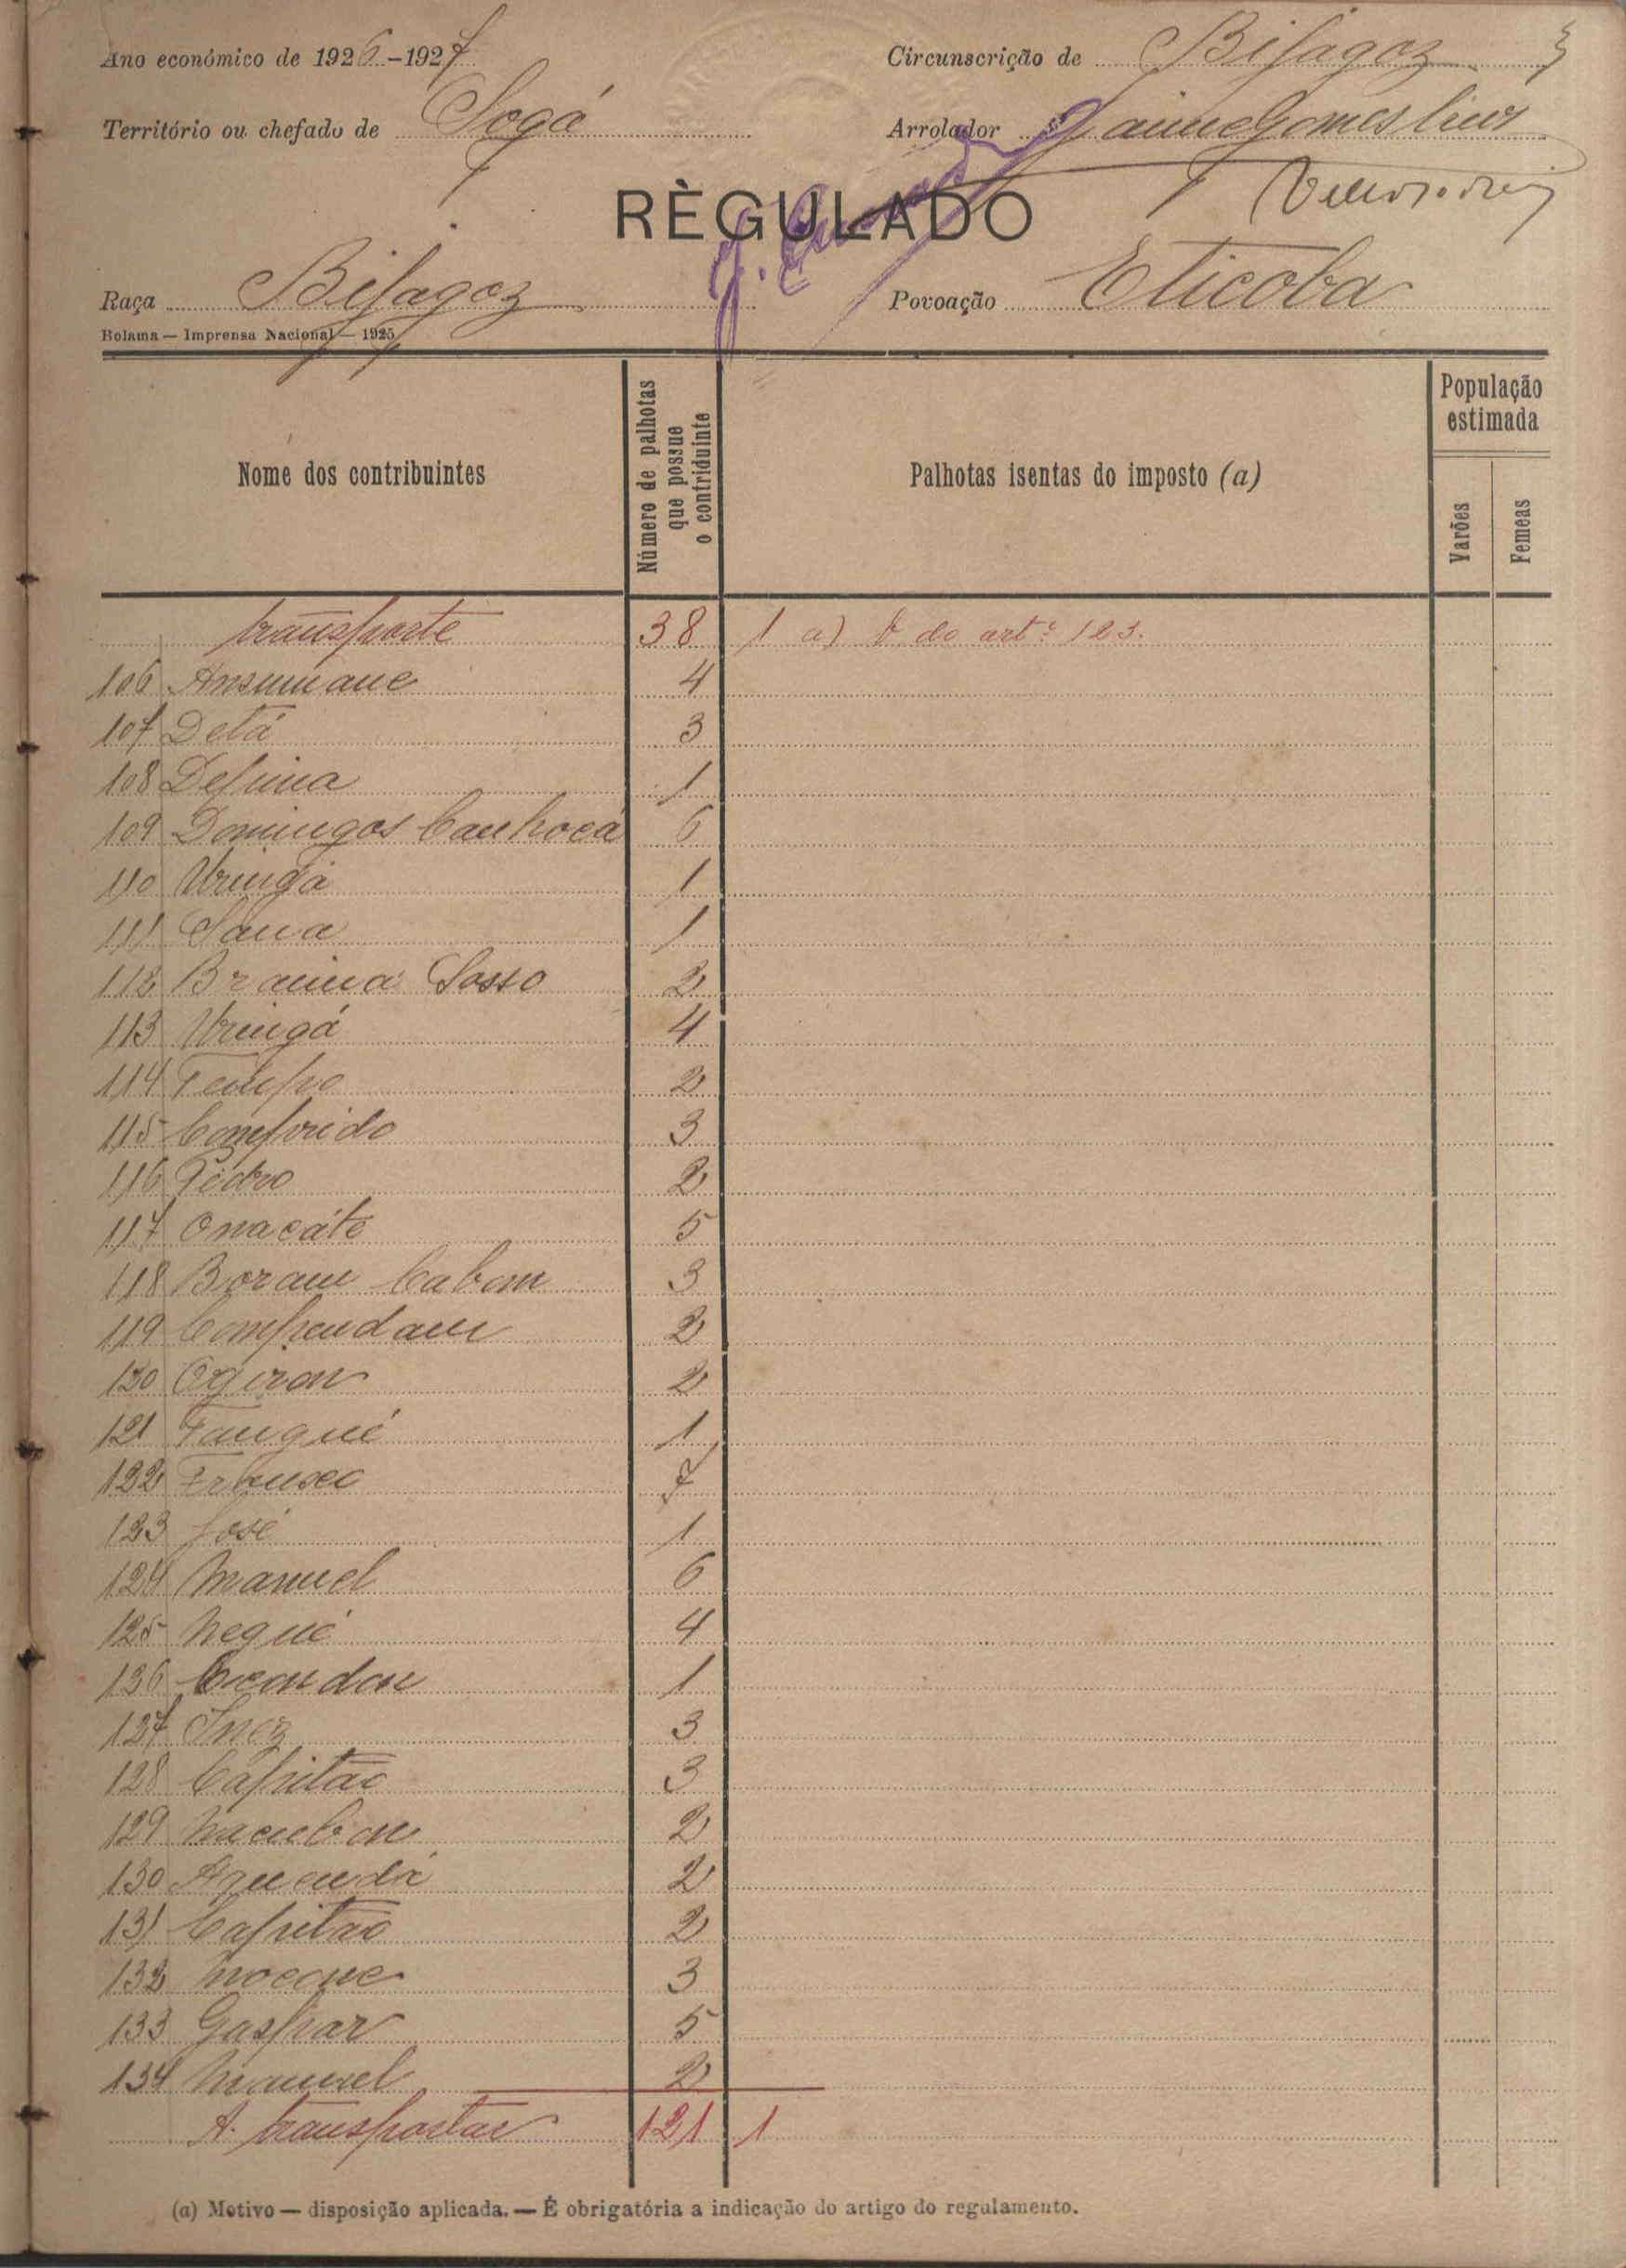 Ano económico de 1926-1927 Circunscrição de Bijagoz
Território ou chefado de Sogá Arrolador Jaime Gomes
RÈGULADO
Raça Bijagoz Povoação Eticoba
Bolama — Imprensa Nacional — 1925
Nome dos contribuintes
Número de palhotas que possue o contriduinte
Palhotas isentas do imposto (a)
População estimada
Varões
Femeas
transporte 38 1 a) b do artº 123.
106 Ansumane 4
107 Detá 3
108 Defuna 1
109 Domingos Canhocá 6
110 Uringá 1
111 Sana 1
112 Braima Sosso 2
113 Uringá 4
114 Tempo 2
115 Comprido 3
116 Pedro 2
117 Onacáte 5
118 Boram Cabom 3
119 Compendam 2
120 Ogiron 2
121 Tangué 1
122 7
123 José 1
124 Manuel 6
125 Nequé 4
126 1
127 Inez 3
128 Capitão 3
129 2
130 2
131 Capitão 2
132 3
133 Gaspar 5
134 Manuel 2
A transportar 121 1
(a) Motivo — disposição aplicada. — É obrigatória a indicação do artigo do regulamento.